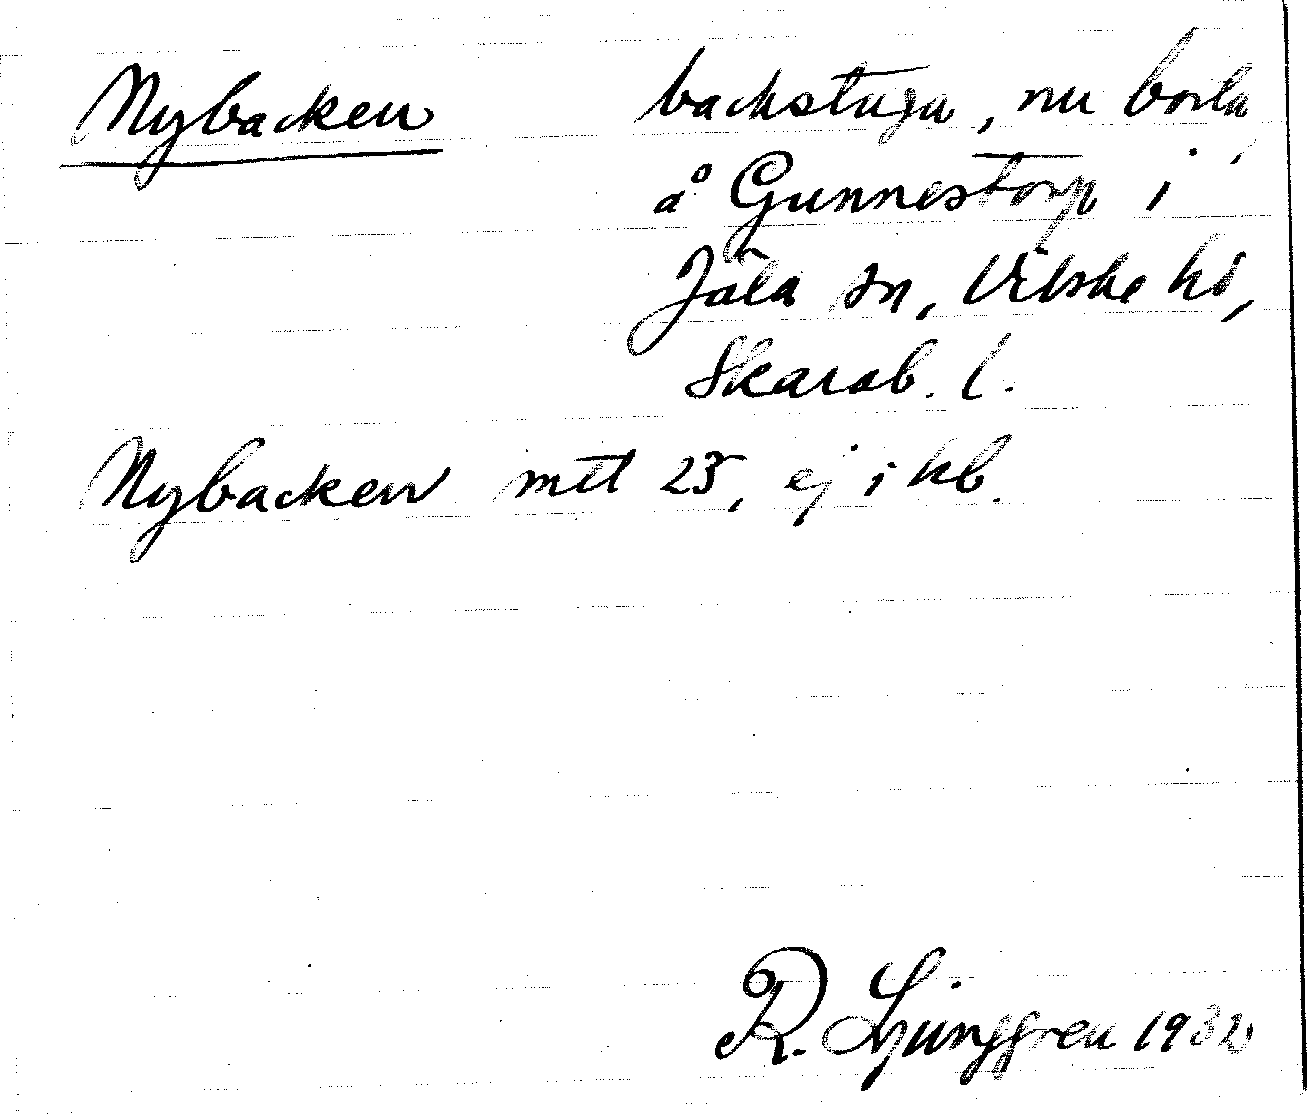 Nybacken backstuga, nu borta,
å Gunnestorp i
Jäla sn, Vilske hd,
Skarab. l.
Nybacken mtl 25, ej i kb.
R. Ljunggren 1932